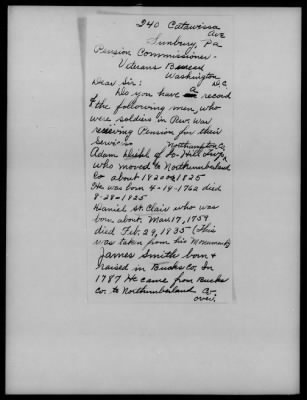 240 Catawissa
Ave
Sunbury, Pa
Pension Commissioner -
Veterans Bureau
Washington
D.C.
Dear Sir:
Do you have a record
of the following men, who
were soldiers in Rev. War
receiving Pension for their
Services
Northampton Co
Adam of
who moved to Northumberland
Co about 1820 or 1825
He was born 4-14-1762 died
8-28-1825
Daniel St. Clair who was
born about Mar 17, 1759
died Feb. 29, 1835 (This
was taken from his Monument)
James Smith born &
raised in Bucks Co. In
1787 He came from Bucks
Co. to Northumberland Co.
over.